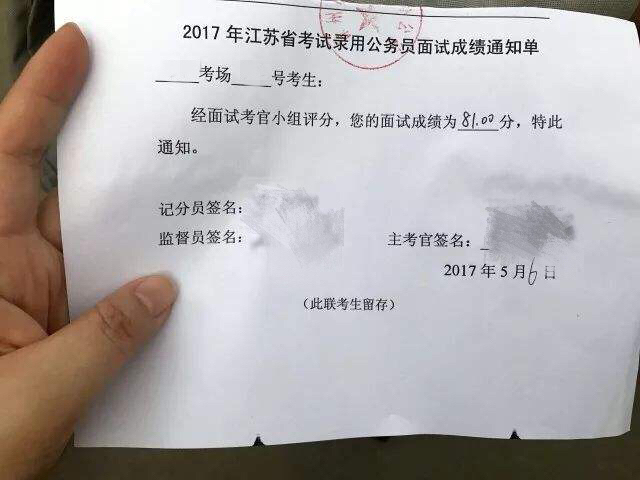 2017 年江苏省考试录用公务员面试成绩通知单
____考场____号考生：
经面试考官小组评分，您的面试成绩为 81.00 分，特此
通知。
记分员签名：
监督员签名：
主考官签名：
2017 年 5 月 6 日
（此联考生留存）